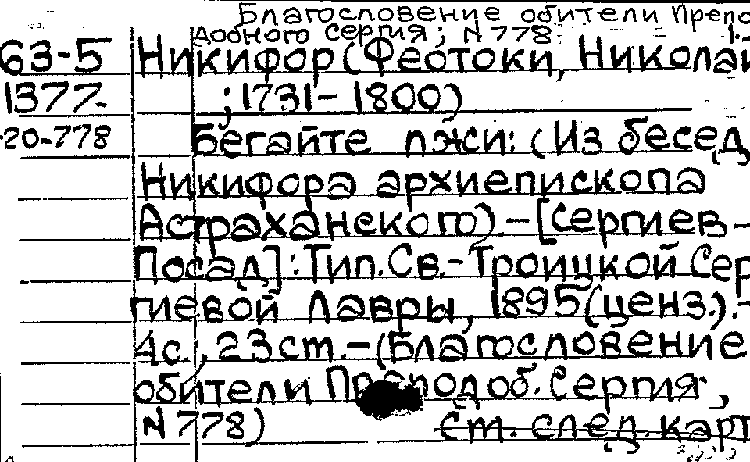 Благословение обители Препо
добного Сергия; N 778.
63-5 Никифор (Феотоки, Николай
1377- ; 1731-1800)
20-778 Бегайте лжи: (Из бесед
Никифора архиепископа
Астраханского) - [Сергиев-
Посад]: Тип. Св.-Троицкой Сер
гиевой Лавры, 1895 (ценз.).-
4с., 23см. - (Благословение
обители Преподоб. Сергия,
N 778) См. след. карт